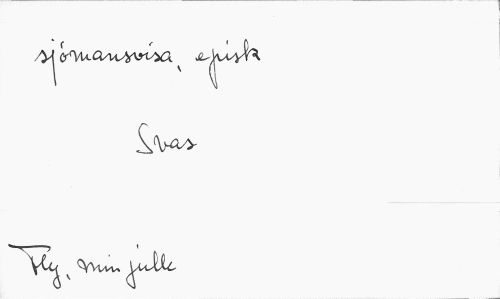 sjömansvisa, episk
Svas
Fly, min julle